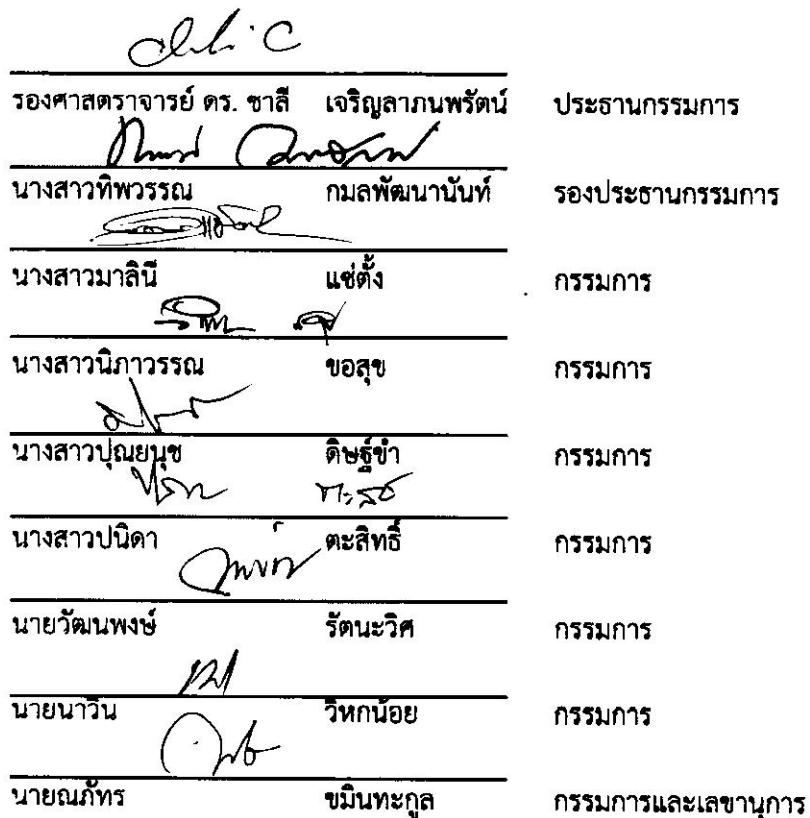 รองศาสตราจารย์ ดร. ชาลี เจริญลาภนพรัตน์ ประธานกรรมการ
นางสาวทิพวรรณ กมลพัฒนานันท์ รองประธานกรรมการ
นางสาวมาลินี แซ่ตั้ง กรรมการ
นางสาวนิภาวรรณ ขอสุข กรรมการ
นางสาวปุณยนุช ดิษฐ์ขำ กรรมการ
นางสาวปนิดา ตะสิทธิ์ กรรมการ
นายวัฒนพงษ์ รัตนะวิศ กรรมการ
นายนาวิน วิหกน้อย กรรมการ
นายณภัทร ขมินทะกูล กรรมการและเลขานุการ